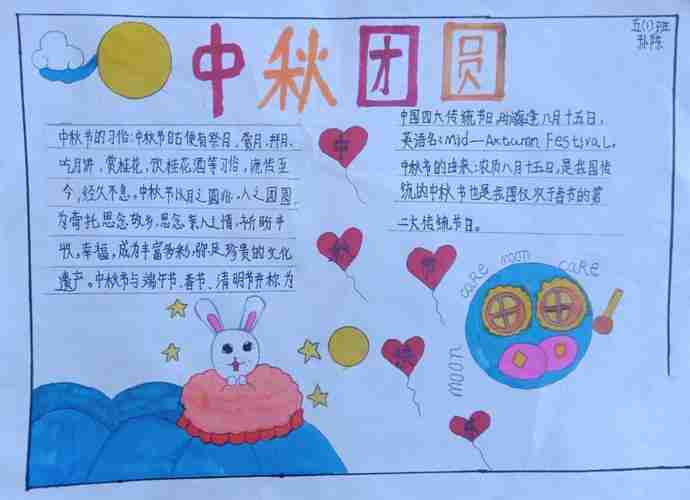 中秋团圆
五(1)班
中秋节的习俗:中秋节自古便有祭月、赏月、拜月、
吃月饼、赏桂花、饮桂花酒等习俗,流传至
今,经久不息。中秋节以月之圆 人之团圆
为寄托思念故乡,思念亲人之情,祈盼丰
收、幸福,成为丰富多彩,弥足珍贵的文化
遗产。中秋节与端午节、春节、清明节并称为
中国四大传统节日,时 八月十五日,
英语名:Mid—Autumn Festival.
中秋节的由来:农历八月十五日,是我国传
统的中秋节也是我国仅次于春节的第
二大传统节日。
中
秋
节
快
乐
moon cake
moon cake